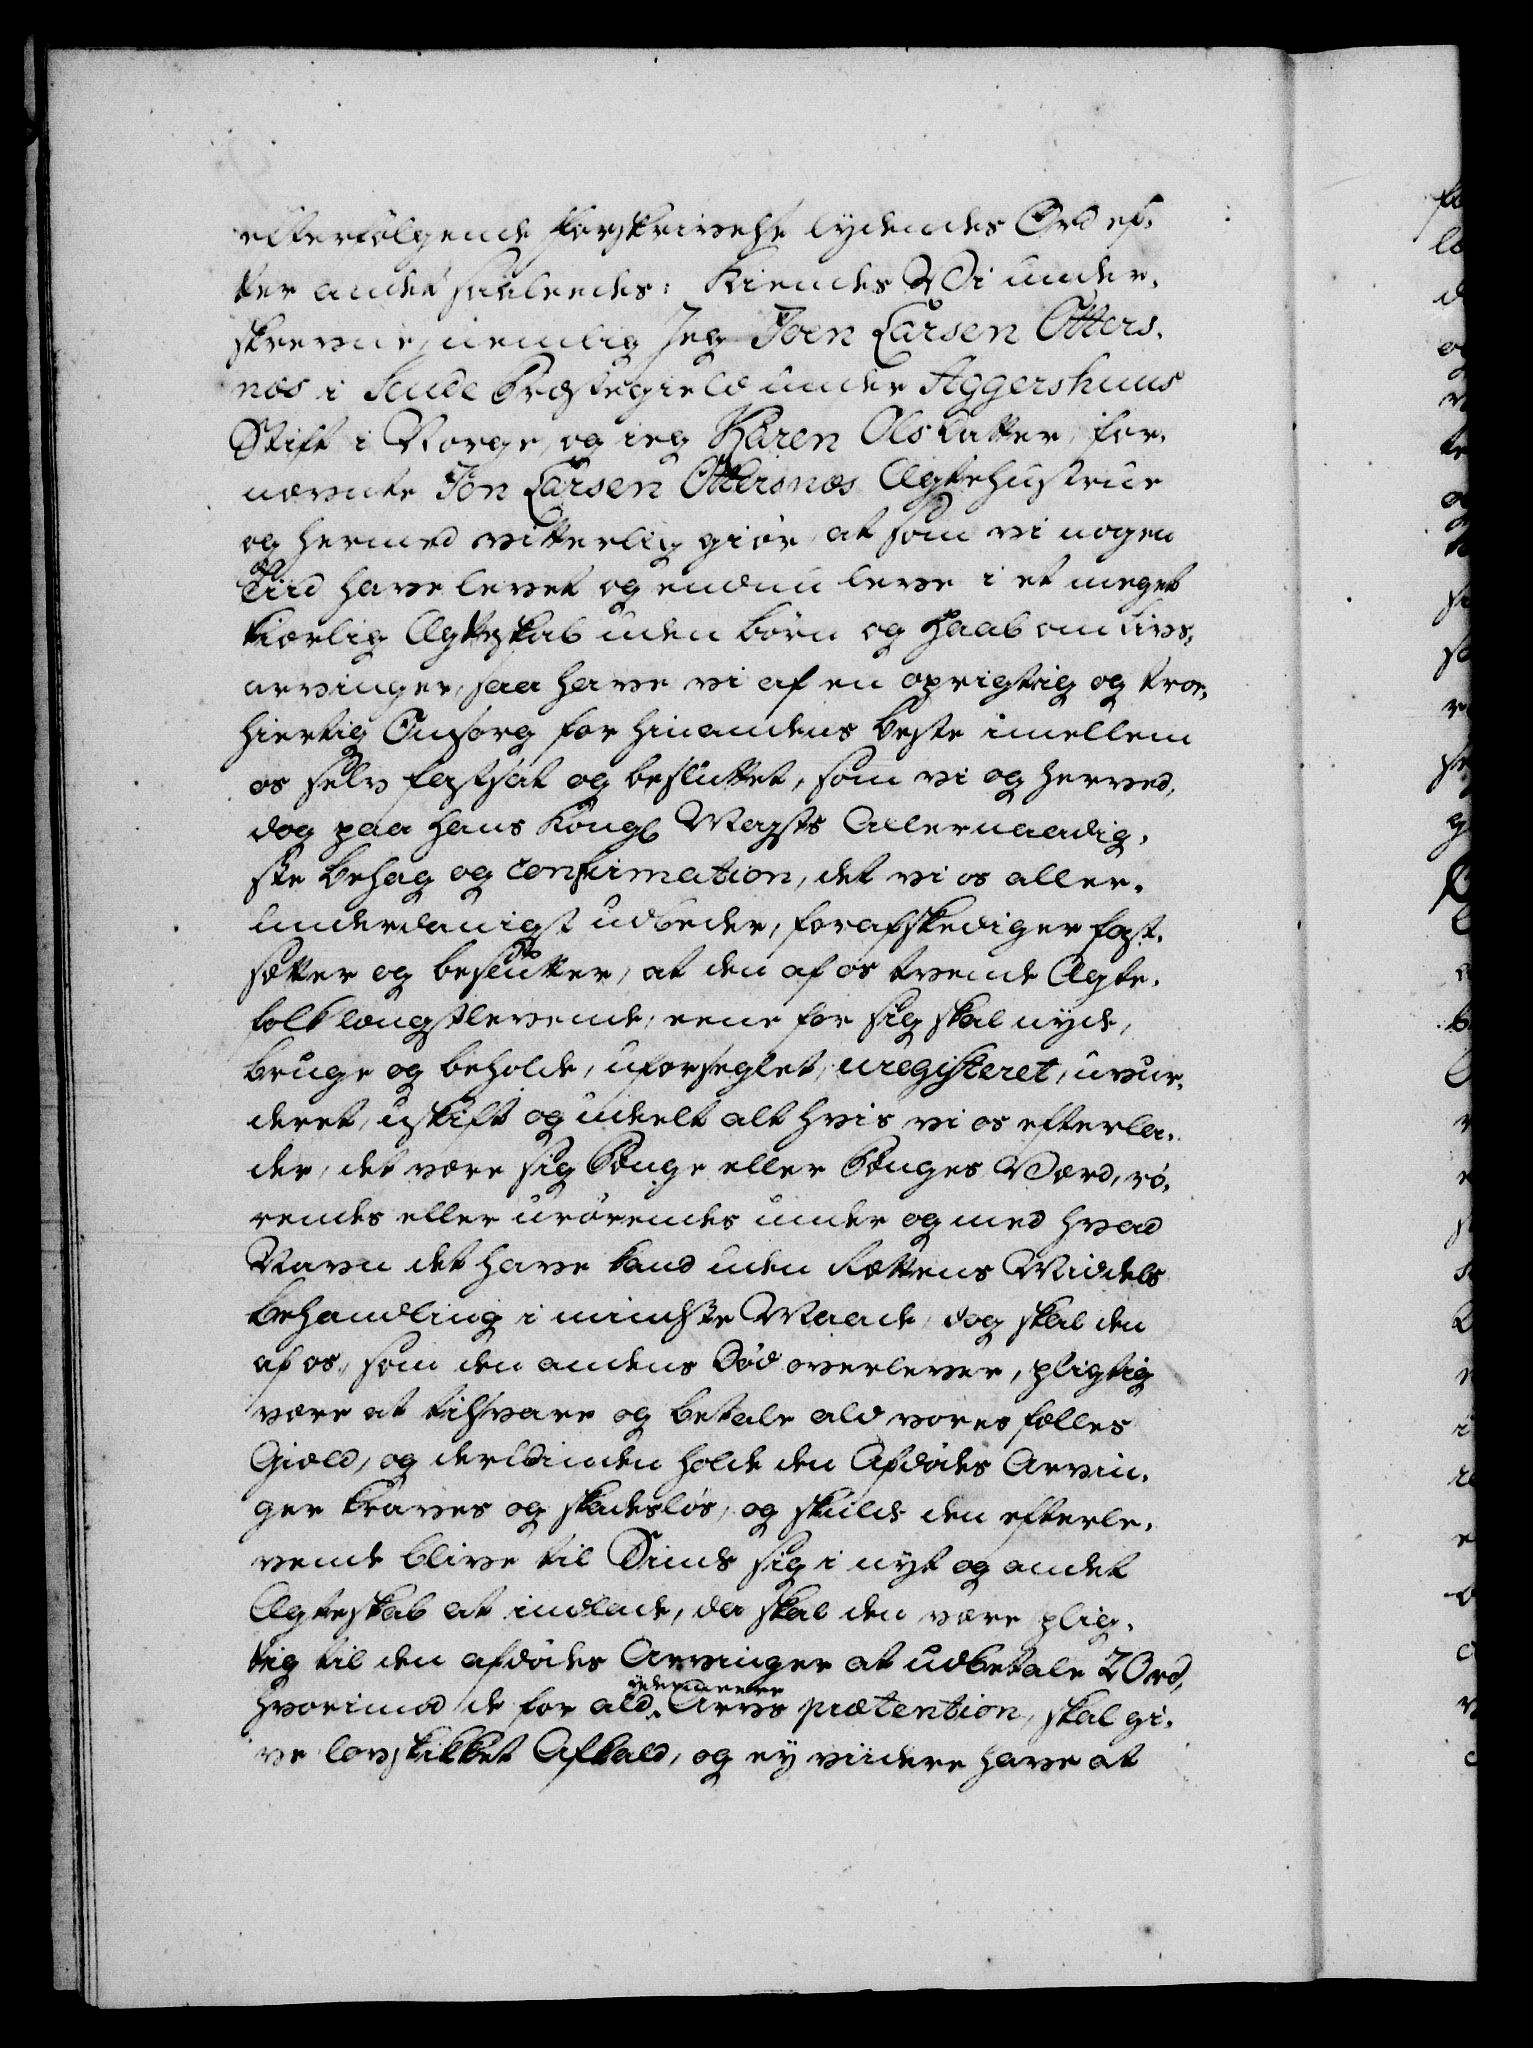 efterfølgende forskrivelse lydendes Ord ef-
ter andet saaledes: Kiendes Vi under-
skrevne, nemlig Jeg Joen Larsen Otters-
næs i Saude Præstegield under Aggershuus
Stift i Norge, og ieg Karen Olsdatter, for-
nævnte Jon Larsen Ottersnæs Ægtehustrue
og hermed vitterlig giøre, at som vi nogen
Tiid have levet og endnu leve i et meget
kierlig Ægteskab uden børn og haab om livs-
arvinger, saa have vi af en oprigtig og troe-
hiertig Omsorg for hinandens beste imellem
os selv fastsat og besluttet, som vi og herved,
dog paa Hans Kongl Maysts Allernaadig-
ste behag og confirmation, det vi os aller-
underdanigst udbeder, forafskediger fast-
sætter og beslutter, at den af os tvende Ægte-
folk længstlevende, eene for sig skal nyde,
bruge og beholde, uforseglet, uregisteret, uvur-
deret, uskift og udeelt alt hvis vi os efterla-
der, det være sig Penge eller Penges Værd, rø-
rendes eller urørendes under og med hvad
Navn det have kand uden Rettens Middels
behandling i mindste Maade, dog skal den
af os, som den andens Død overlever, pligtig
være at tilsvare og betale ald vores fælles
Gield, og derudinden holde den Afdødes Arvin-
ger kraves og skadesløs, og skulde den efterle-
vende blive til Sinds sig i nyt og andet
Ægteskab at indlade, da skal den være plig-
tig til den afdødes Arvinger at udbetale 20rd,
hvorimod de for ald ydermeere Arvs prætention, skal gi-
ve lovskikket Afkald, og ey viidere have at